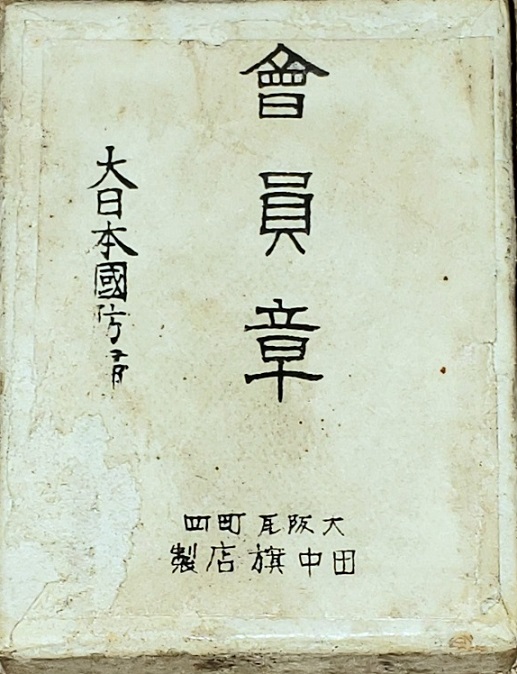 會員章
大日本國防
大阪瓦町四
田中旗店製